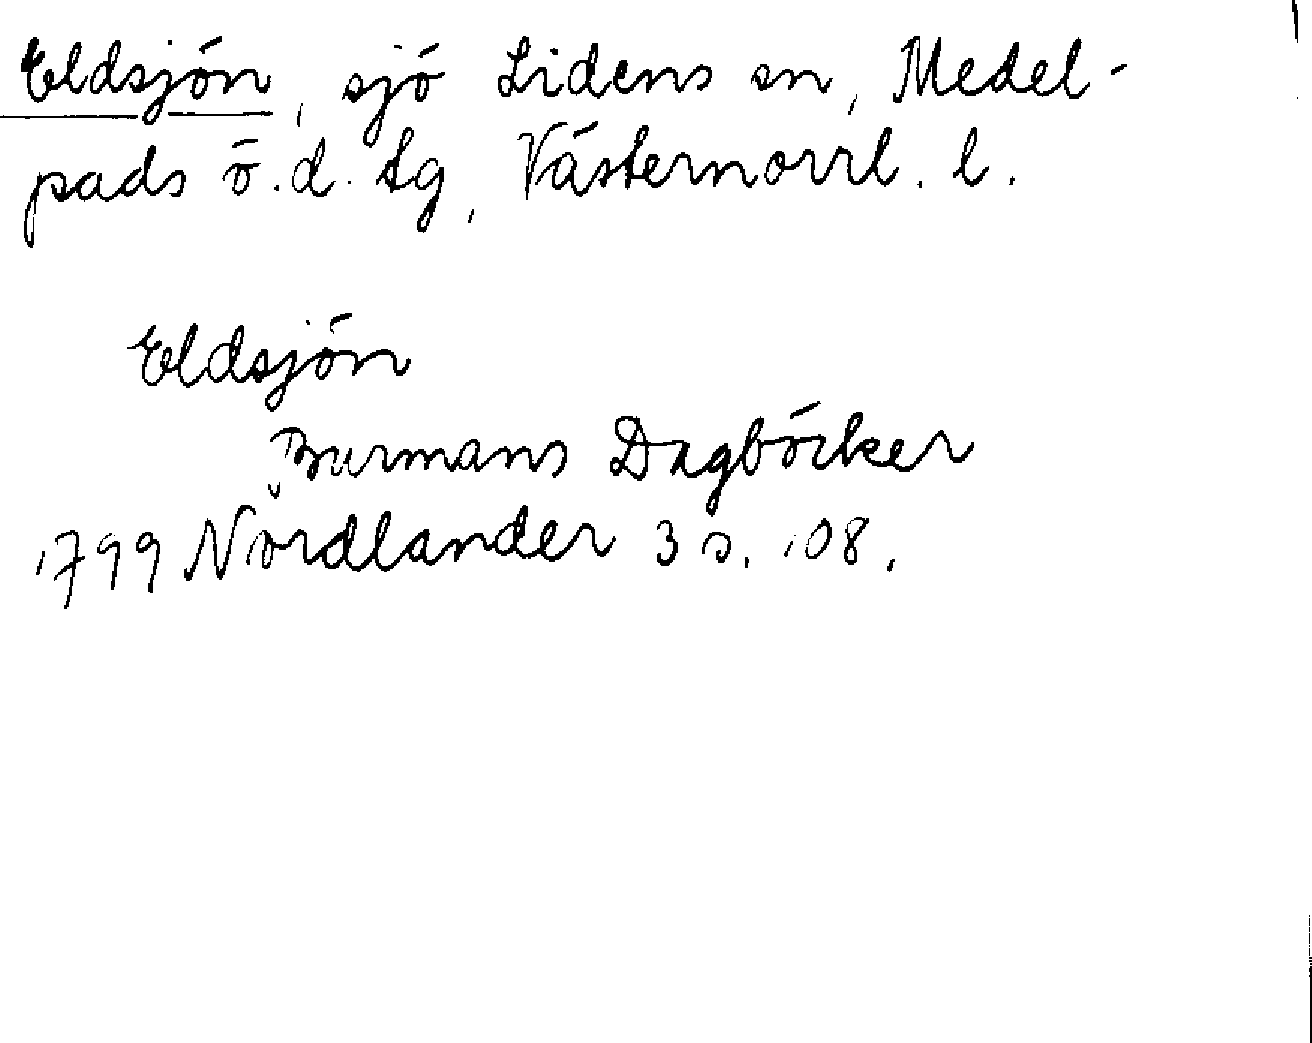 Eldsjön, sjö Lidens sn, Medel-
pads ö.d. tg, Västernorrl. l.
Eldsjön
Burmans Dagböcker
1799 Nordlander 3 s. 108.